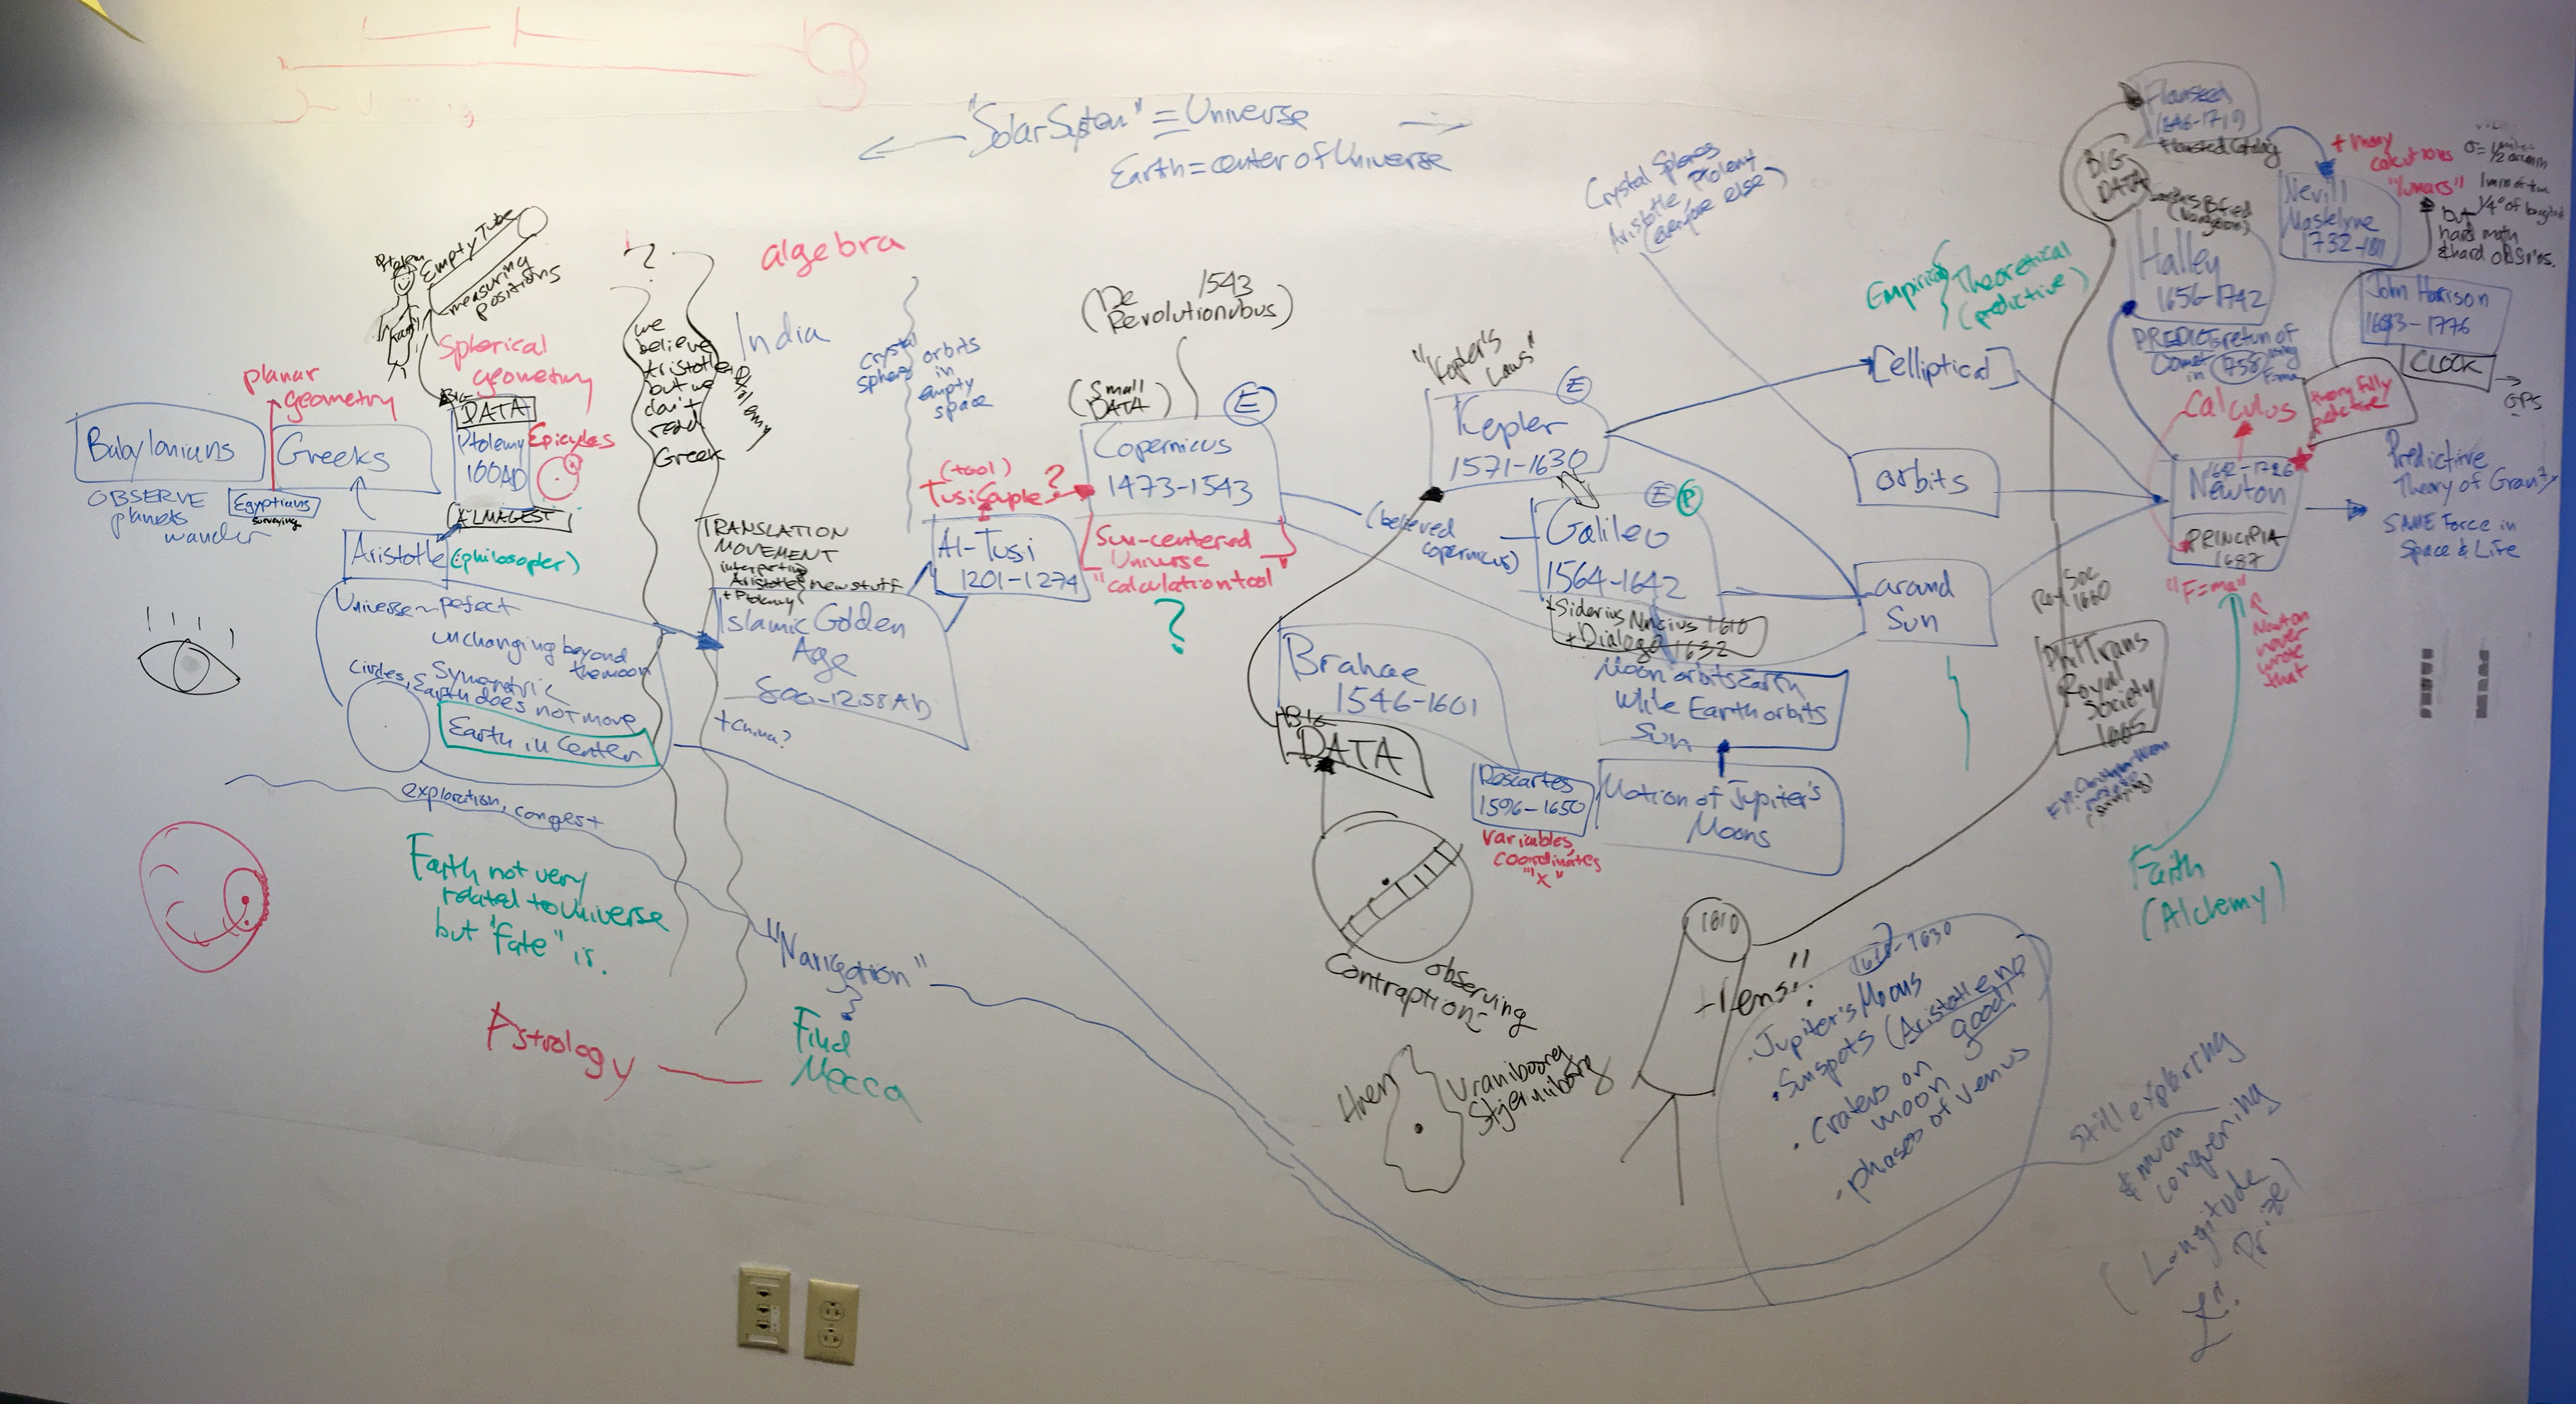 "Solar System" ≡ Universe
Earth = center of Universe
Ptolemy
Empty Tube
measuring
positions
planar
geometry
Spherical
geometry
Babylonians
OBSERVE
planets
wander
Egyptians
surveying
Greeks
BIG
DATA
Ptolemy
100AD
Epicycles
ALMAGEST
Aristotle
(philosopher)
Universe ~ perfect
unchanging beyond
the moon
Circles, Symmetric
Earth does not move
Earth in Center
exploration, conquest
Earth not very
related to Universe
but "fate" is.
Astrology
?
we
believe
Aristotle
but we
don't
read
Greek
Ptolemy
algebra
India
TRANSLATION
MOVEMENT
interpreting
Aristotle
+ Ptolemy
new stuff
Islamic Golden
Age
800-1258AD
+ China?
"Navigation"
Find
Mecca
crystal
spheres
orbits
in
empty
space
(tool)
Tusi Couple?
Al-Tusi
1201-1274
(De 1543
Revolutionobus)
(Small
DATA)
E
Copernicus
1473-1543
Sun-centered
Universe
"calculation tool"
?
"Kepler's
Laws"
E
Kepler
1571-1630
(believed
copernicus)
E
P
Galileo
1564-1642
+ Siderius Nuncius 1610
+ Dialogo 1632
Moon orbits Earth
While Earth orbits
Sun
Motion of Jupiter's
Moons
Brahae
1546-1601
BIG
DATA
Descartes
1596-1650
Variables,
Coordinates
"x"
observing
Contraption
Hven
Uraniborg
Stjerniborg
1610
+ lens!!
1610-1630
· Jupiter's Moons
· Sunspots (Aristotle no
good!)
· Craters on
moon
· phases of Venus
Crystal Spheres
Aristotle, Ptolemy
(everyone else)
Empirical
Theoretical
(predictive)
[elliptical]
orbits
around
Sun
Flamsteed
1646-1719
BIG
DATA
Halley
1656-1742
PREDICTS return of
Comet in 1758 using
F=ma
+ many
calculations
"lunars"
Nevill
Maskelyne
1732-1811
1 min of time
1/4° of longitude
but
hard math
& hard obs'ns.
John Harrison
1693-1776
CLOCK
GPS
theory fully
predictive
Calculus
1642-1726
Newton
PRINCIPIA
1687
"F=ma"
Newton
never
wrote
that
Predictive
Theory of Gravity
SAME Force in
Space & Life
Roy Soc
1660
Phil Trans
Royal
Society
1665
Faith
(Alchemy)
Still exploring
& much
conquering
(Longitude
Prize)